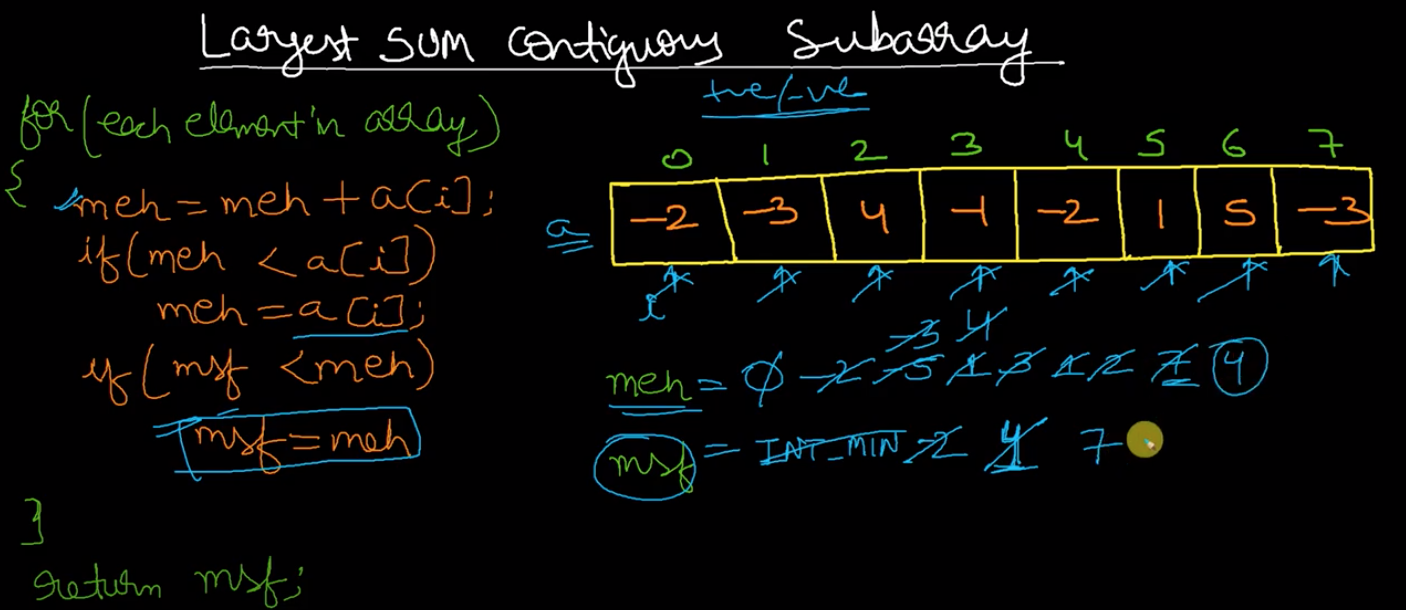 Largest sum contiguous Subarray
+ve/-ve
for(each element in array)
{
meh = meh + a[i];
if(meh < a[i])
meh = a[i];
if(msf < meh)
msf = meh
}
return msf;
0 1 2 3 4 5 6 7
a -2 -3 4 -1 -2 1 5 -3
i
-3 4
meh = 0 -2 -5 1 3 1 2 7 4
msf = INT_MIN -2 4 7